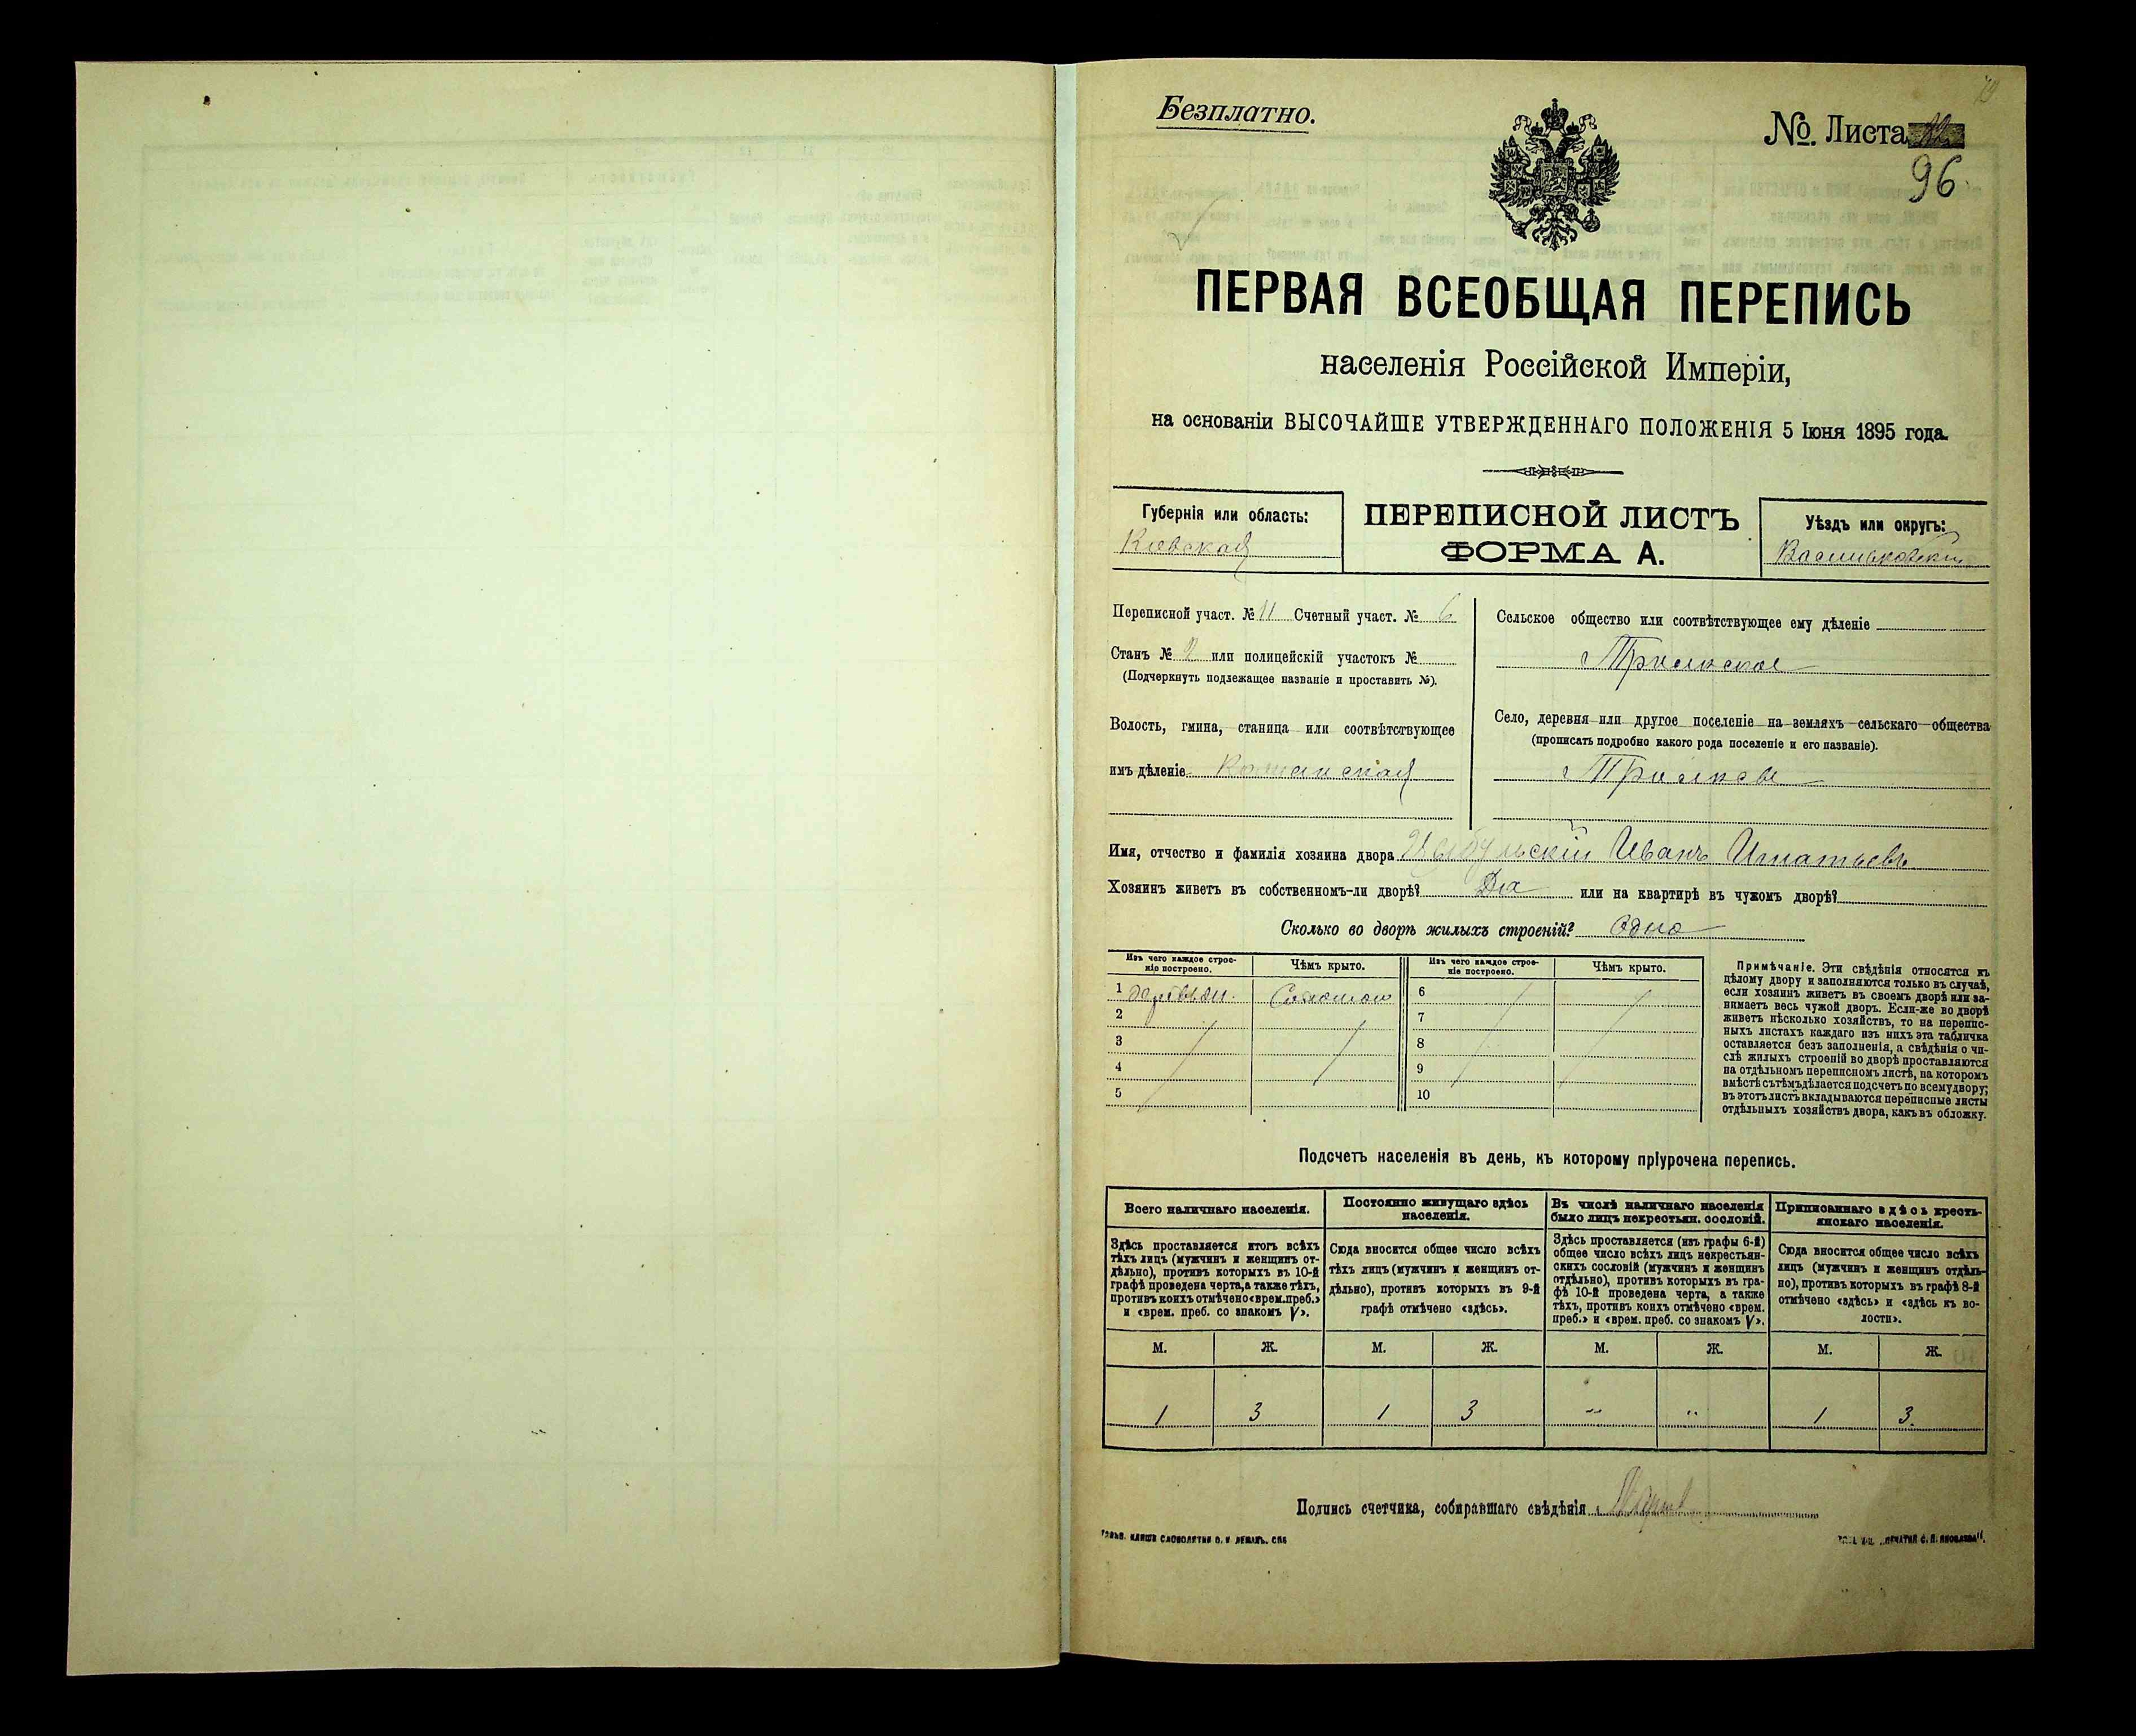 Безплатно.
№. Листа
96.
ПЕРВАЯ ВСЕОБЩАЯ ПЕРЕПИСЬ
населенія Россійской Имперіи,
на основаніи ВЫСОЧАЙШЕ УТВЕРЖДЕННАГО ПОЛОЖЕНІЯ 5 Іюня 1895 года.
Губернія или область:
Кіевская
ПЕРЕПИСНОЙ ЛИСТЪ
ФОРМА А.
Уѣздъ или округъ:
Васильковскій
Переписной участ. № 11 Счетный участ. № 6
Станъ № 2 или полицейскій участокъ №
(Подчеркнуть подлежащее названіе и проставить №).
Волость, гмина, станица или соотвѣтствующее
имъ дѣленіе Кошанская
Сельское общество или соотвѣтствующее ему дѣленіе
Трилиское
Село, деревня или другое поселеніе на земляхъ сельскаго общества
(прописать подробно какого рода поселеніе и его названіе).
Имя, отчество и фамилія хозяина двора Цыбульскій Иванъ Игнатьевъ
Хозяинъ живетъ въ собственномъ-ли дворѣ? Да или на квартирѣ въ чужомъ дворѣ?
Сколько во дворѣ жилыхъ строеній? Одно
Изъ чего каждое строе-
ніе построено.
Чѣмъ крыто.
Изъ чего каждое строе-
ніе построено.
Чѣмъ крыто.
1 деревян. Соломою
2
3
4
5
6
7
8
9
10
Примѣчаніе. Эти свѣдѣнія относятся къ
цѣлому двору и заполняются только въ случаѣ,
если хозяинъ живетъ въ своемъ дворѣ или за-
нимаетъ весь чужой дворъ. Если-же во дворѣ
живетъ нѣсколько хозяйствъ, то на перепис-
ныхъ листахъ каждаго изъ нихъ эта табличка
оставляется безъ заполненія, а свѣдѣнія о чи-
слѣ жилыхъ строеній во дворѣ проставляются
на отдѣльномъ переписномъ листѣ, на которомъ
вмѣстѣ съ тѣмъ дѣлается подсчетъ по всему двору;
въ этотъ листъ вкладываются переписные листы
отдѣльныхъ хозяйствъ двора, какъ въ обложку.
Подсчетъ населенія въ день, къ которому пріурочена перепись.
Всего наличнаго населенія.
Здѣсь проставляется итогъ всѣхъ
тѣхъ лицъ (мужчинъ и женщинъ от-
дѣльно), противъ которыхъ въ 10-й
графѣ проведена черта, а также тѣхъ,
противъ коихъ отмѣчено «врем. преб.»
и «врем. преб. со знакомъ V».
Постоянно живущаго здѣсь
населенія.
Сюда вносится общее число всѣхъ
тѣхъ лицъ (мужчинъ и женщинъ от-
дѣльно), противъ которыхъ въ 9-й
графѣ отмѣчено «здѣсь».
Въ числѣ наличнаго населенія
было лицъ некрестьян. сословій.
Здѣсь проставляется (изъ графы 6-й)
общее число всѣхъ лицъ некрестьян-
скихъ сословій (мужчинъ и женщинъ
отдѣльно), противъ которыхъ въ гра-
фѣ 10-й проведена черта, а также
тѣхъ, противъ коихъ отмѣчено «врем.
преб.» и «врем. преб. со знакомъ V».
Приписаннаго здѣсь кресть-
янскаго населенія.
Сюда вносится общее число всѣхъ
лицъ (мужчинъ и женщинъ отдѣль-
но), противъ которыхъ въ графѣ 8-й
отмѣчено «здѣсь» и «здѣсь къ во-
лости».
М. Ж. М. Ж. М. Ж. М. Ж.
1 3 1 3 " " 1 3.
Подпись счетчика, собиравшаго свѣдѣнія